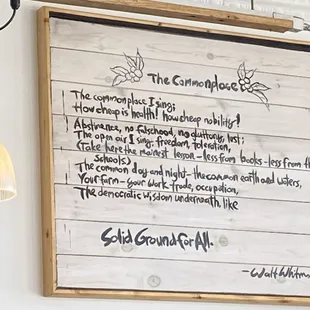 The Commonplace
The commonplace I sing;
How cheap is health! how cheap nobility!
Abstinence, no falsehood, no gluttony, lust;
The open air I sing, freedom, toleration,
(Take here the mainest lesson-less from books-less from the
schools)
The common day and night-the common earth and waters,
Your farm-your work, trade, occupation,
The democratic wisdom underneath, like
Solid Ground for All.
-Walt Whitm